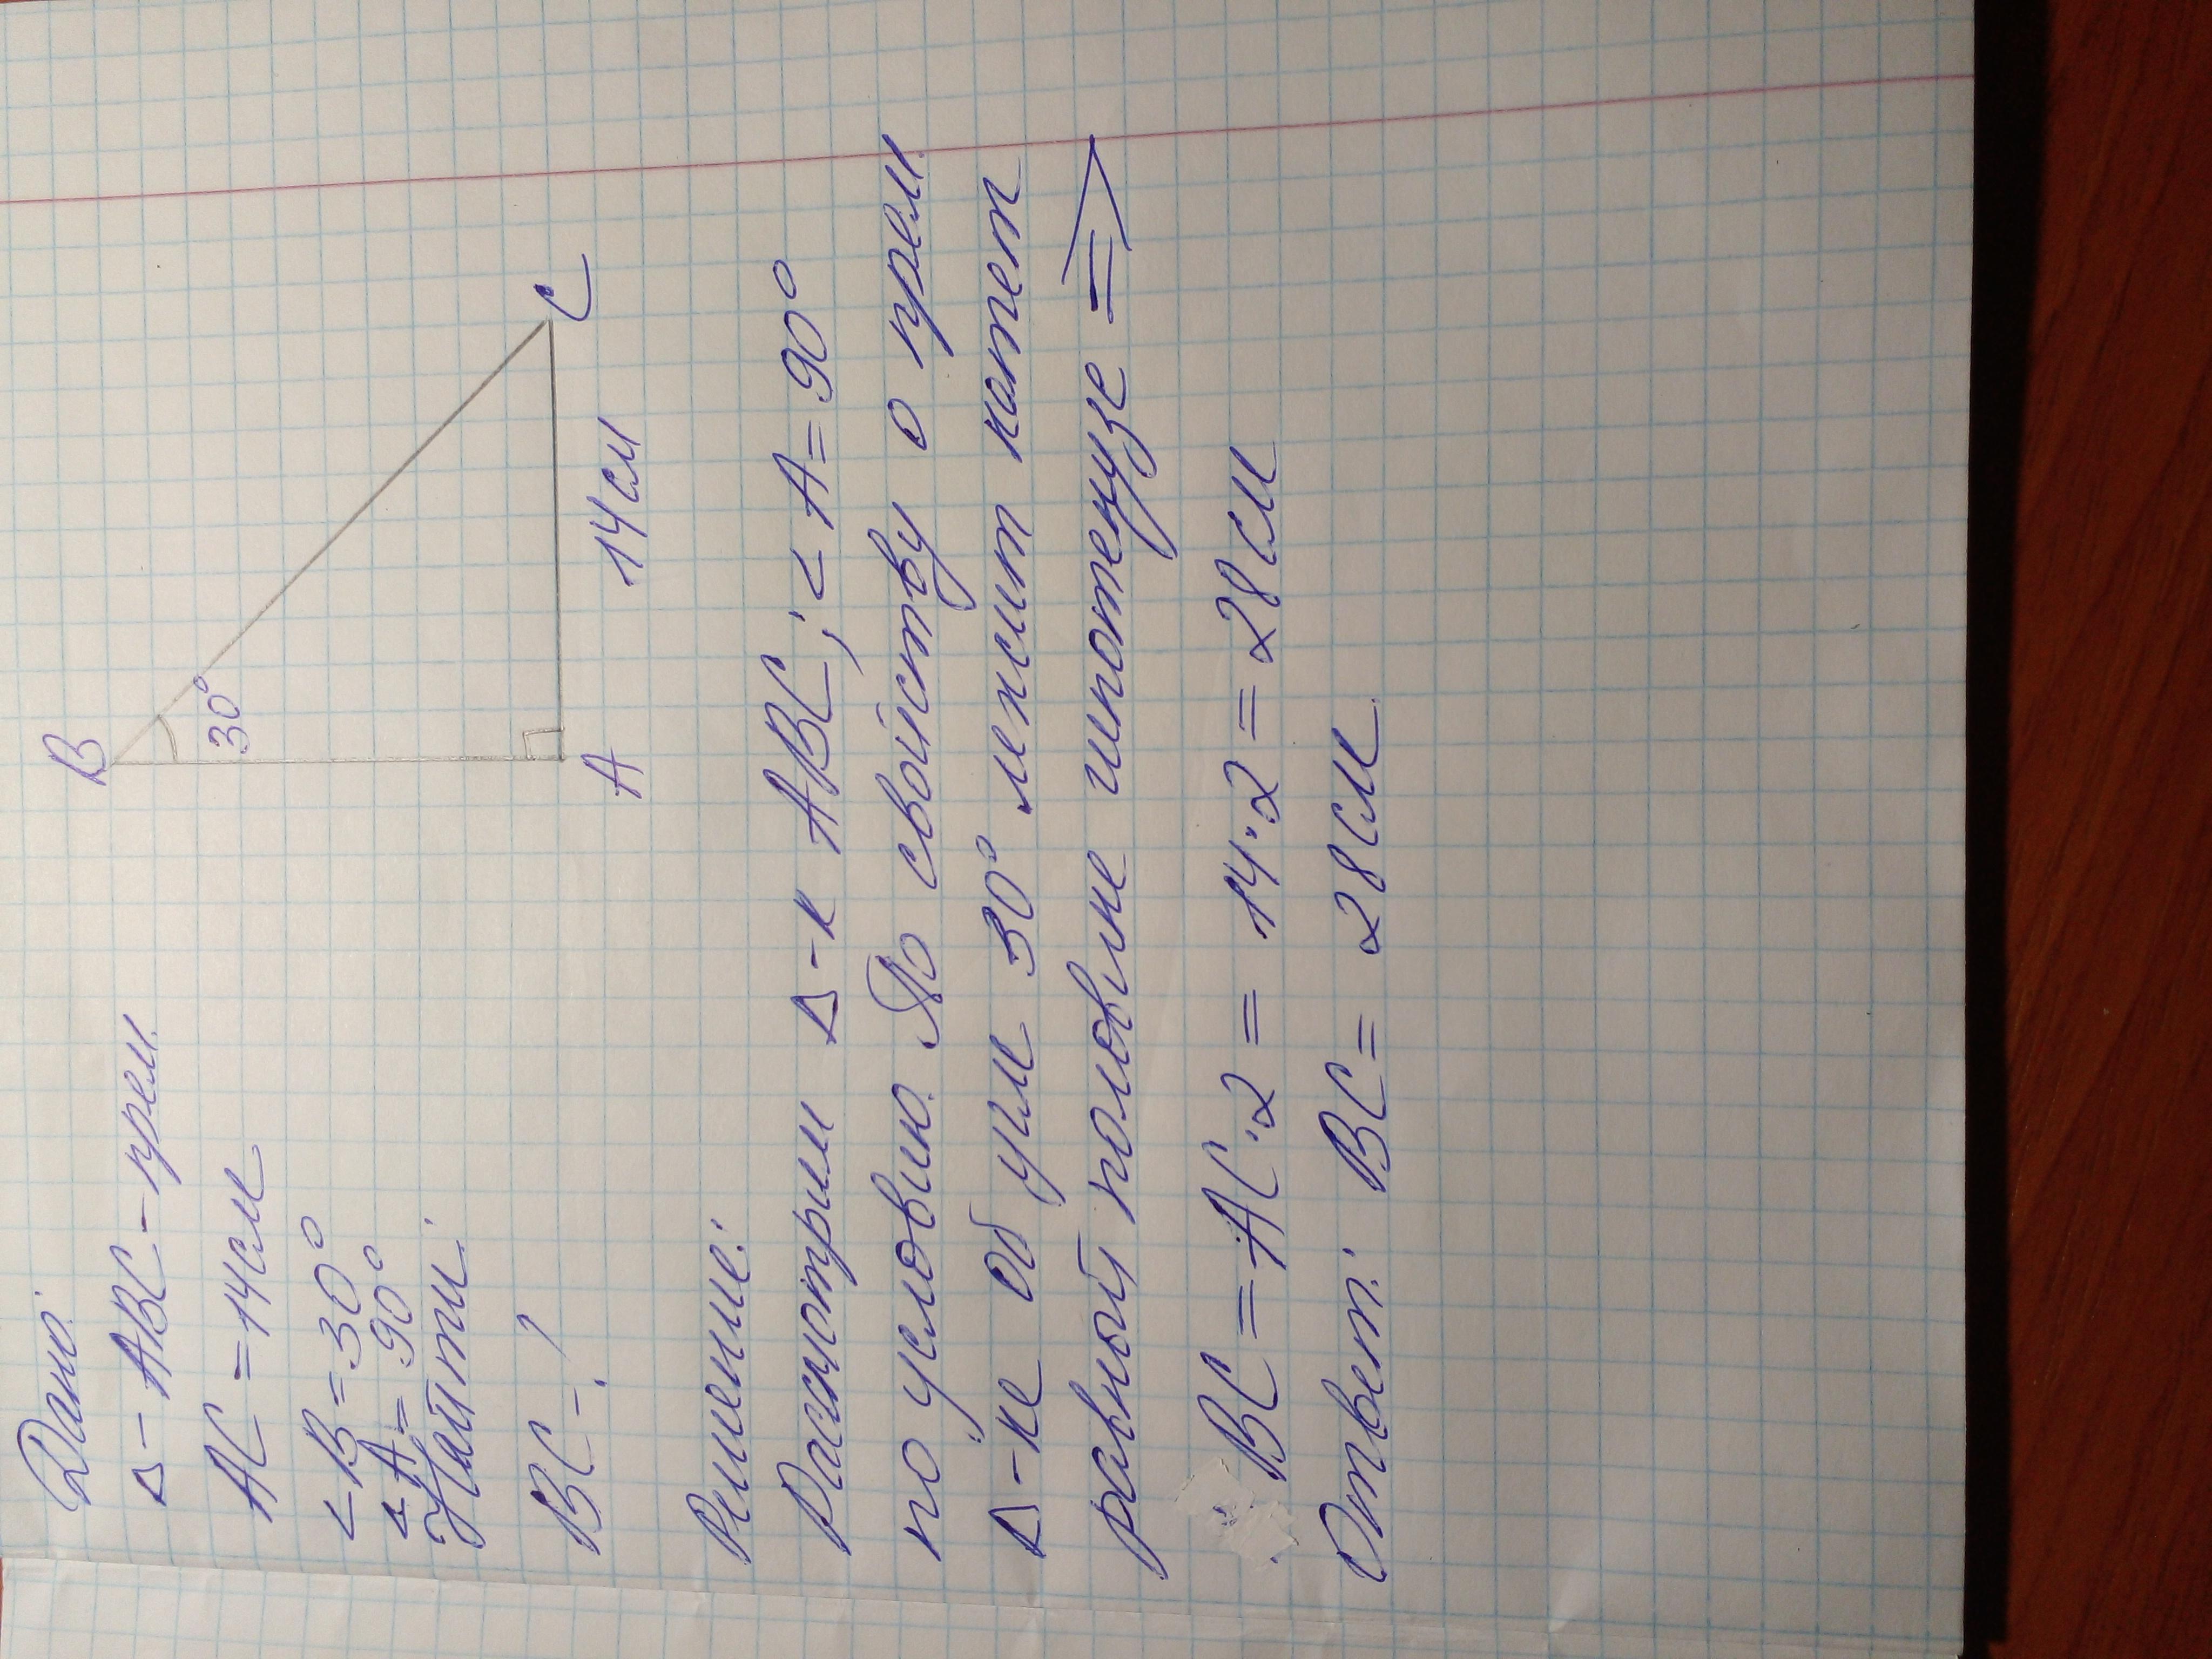 Дано:
Δ - ABC - прям.
AC = 14 см
< B = 30°
< A = 90°
Найти:
BC - ?
B
30°
A
14 см
C
Решение:
Расмотрим Δ-к ABC; < A = 90°
по условию. По свойству о прям.
Δ-ке об угле 30° лежит катет
равный половине гипотенузе =>
BC = AC·2 = 14·2 = 28 см
Ответ: BC = 28 см.